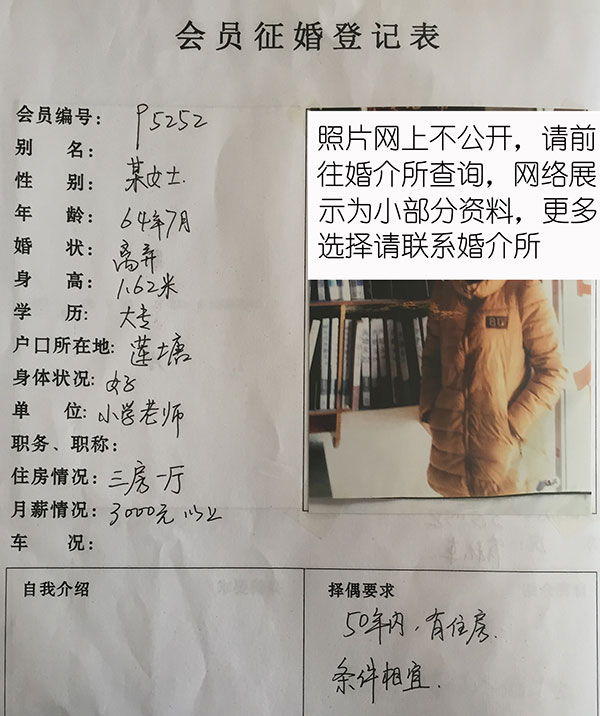 会员征婚登记表
会员编号: P5252
别 名:
性 别: 某女士.
年 龄: 64年7月
婚 状: 离异
身 高: 1.62米
学 历: 大专
户口所在地: 莲塘
身体状况: 好
单 位: 小学老师
职务、职称:
住房情况: 三房一厅
月薪情况: 3000元以上
车 况:
照片网上不公开，请前
往婚介所查询，网络展
示为小部分资料，更多
选择请联系婚介所
自我介绍
择偶要求
50年内，有住房.
条件相宜.